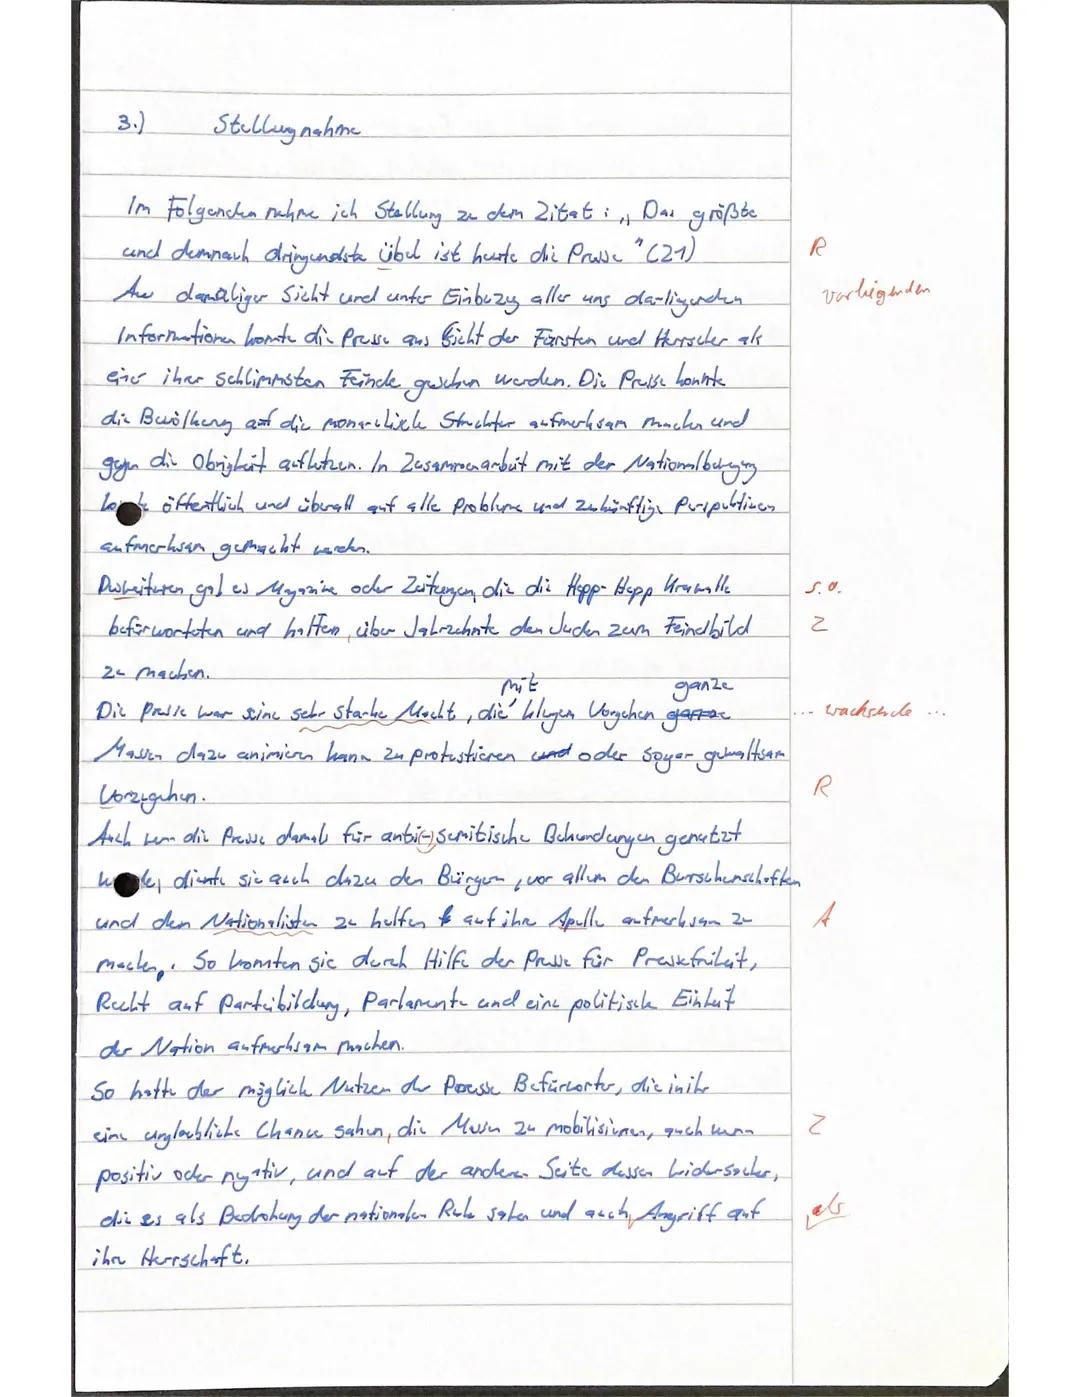 3.) Stellungnahme
Im Folgenden nehme ich Stellung zu dem Zitat: „Das größte
und demnach dringendste übel ist heute die Presse" (21)
R
Aus damaliger Sicht und unter Einbezug aller uns darliegenden
vorliegenden
Informationen konnte die Presse aus Sicht der Fürsten und Herrscher als
einer ihrer schlimmsten Feinde gesehen werden. Die Presse konnte
die Bevölkerung auf die monarchische Struktur aufmerksam machen und
gegen die Obrigkeit aufhetzen. In Zusammenarbeit mit der Nationalbewegung
konnte öffentlich und überall auf alle Probleme und zukünftige Perspektiven
aufmerksam gemacht werden.
Desweiteren gab es Magazine oder Zeitungen, die die Hepp-Hepp Krawalle
s.o.
befürworteten und halfen, über Jahrzehnte den Juden zum Feindbild
Z
zu machen.
mit ganze
Die Presse war seine sehr starke Macht, die klugen Vorgehen
... wachsende ...
Massen dazu animieren kann zu protestieren und oder sogar gewaltsam
Vorzugehen.
R
Auch wenn die Presse damals für anti-semitische Bekundungen genutzt
wurde, diente sie auch dazu den Bürgern, vor allem den Burschenschaften
und den Nationalisten zu helfen auf ihre Apelle aufmerksam zu
A
machen. So konnten sie durch Hilfe der Presse für Pressefreiheit,
Recht auf Parteibildung, Parlamente und eine politische Einheit
der Nation aufmerksam machen.
So hatte der möglich Nutzen der Presse Befürworter, die in ihr
eine unglaubliche Chance sahen, die Massen zu mobilisieren, auch wenn
Z
positiv oder negativ, und auf der anderen Seite dessen Widersacher,
die es als Bedrohung der nationalen Ruhe sahen und auch Angriff auf
als
ihre Herrschaft.